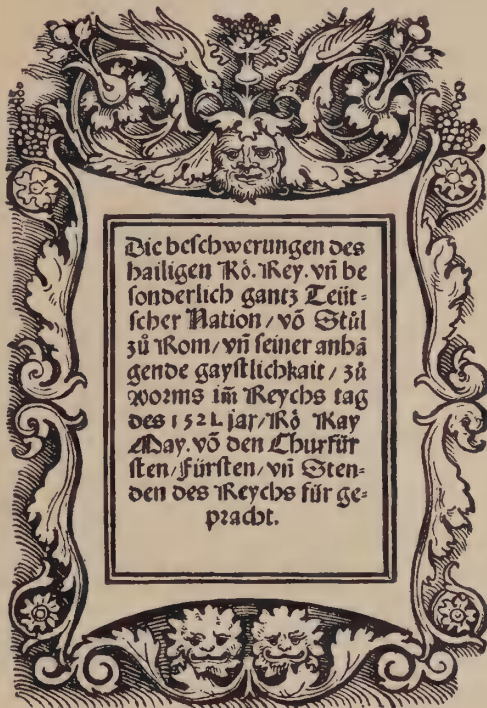 Die beschwerungen des
hailigen Rö. Rey. vñ be
sonderlich gantz Teüt-
scher Nation / võ Stůl
zů Rom / vñ seiner anhã
gende gaystlichkait / zů
worms im̃ Reychs tag
des 1521 jar / Rö Kay
May. võ den Churfür
sten / fürsten / vñ Sten-
den des Reychs für ge-
pracht.